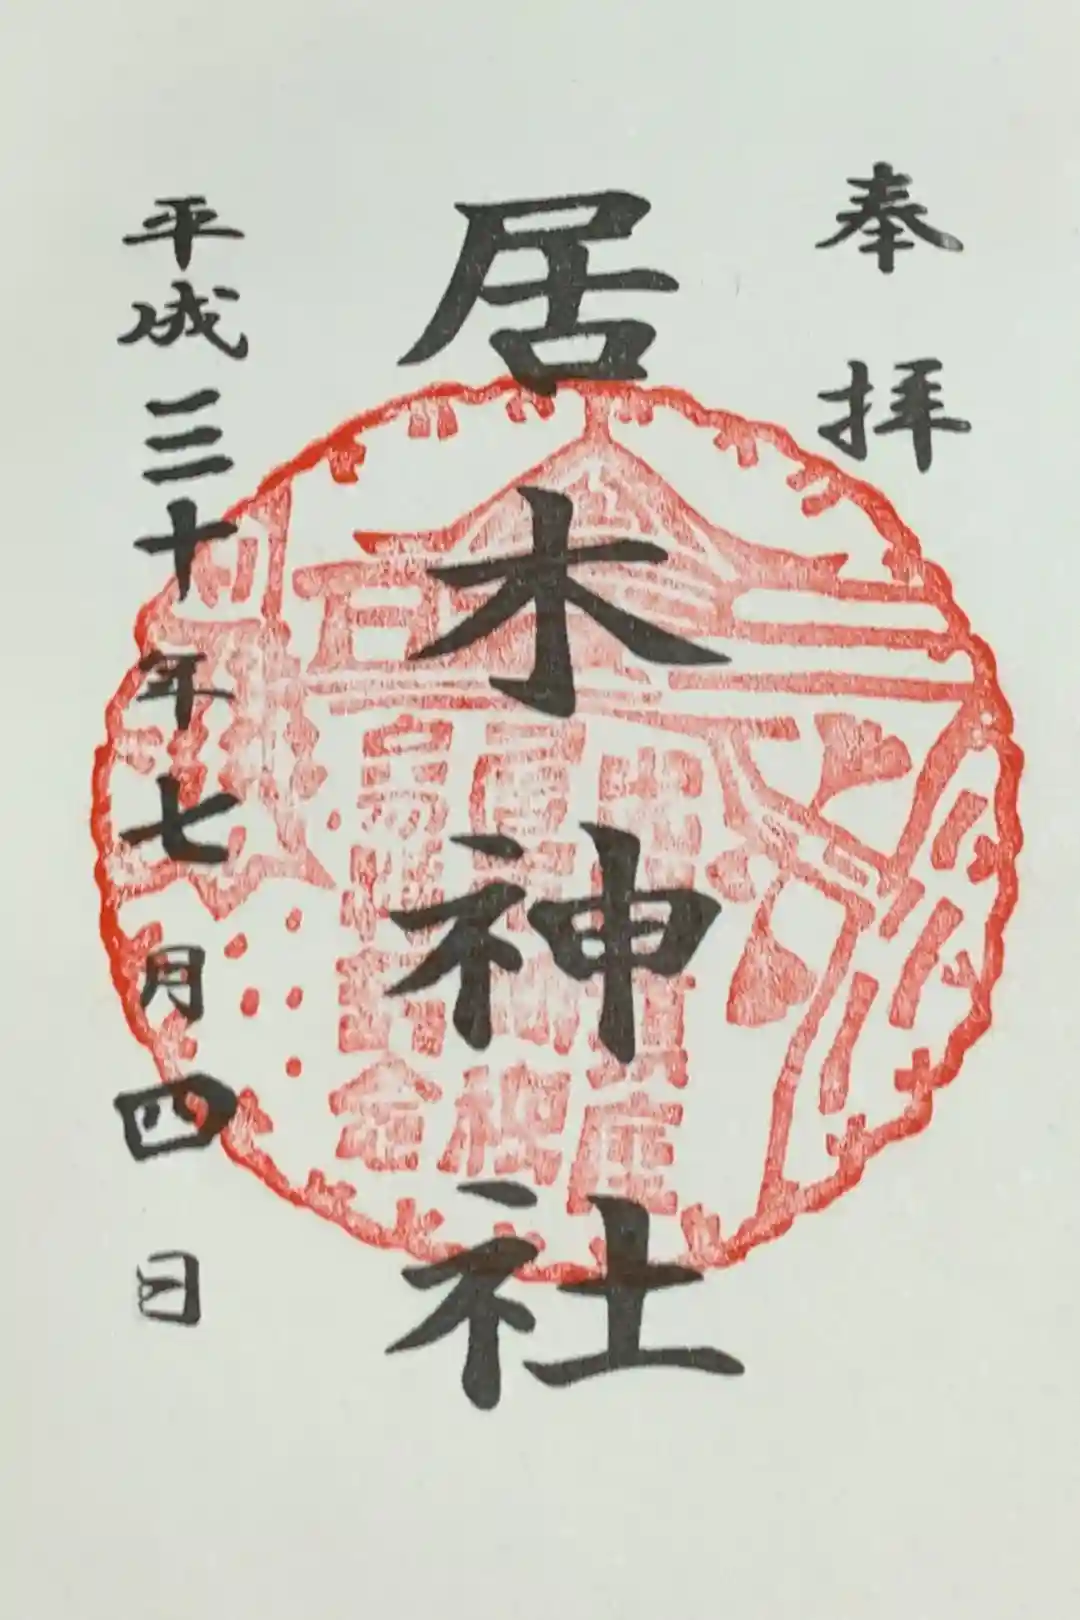 奉拝
居木神社
平成三十年七月四日